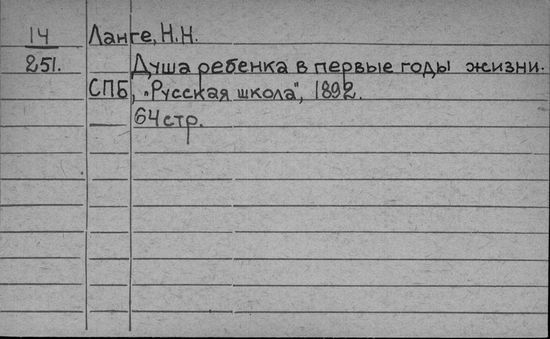 14 Ланге, Н.Н.
251. Душа ребенка в первые годы жизни.
СПБ, "Русская школа", 1892.
64 стр.